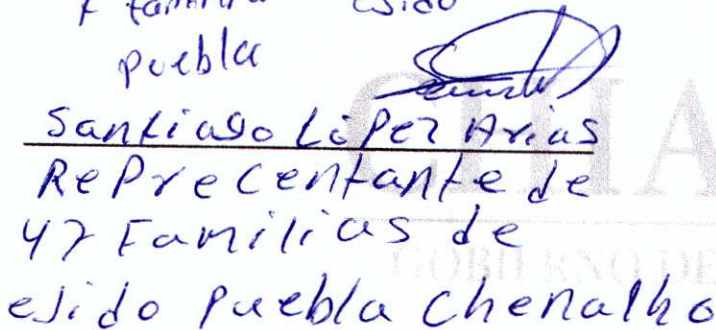 familia ejido
puebla
Santiago López Arias
RePreCentante de
47 Familias de
ejido Puebla Chenalho
CHIA
GOBIERNO DE